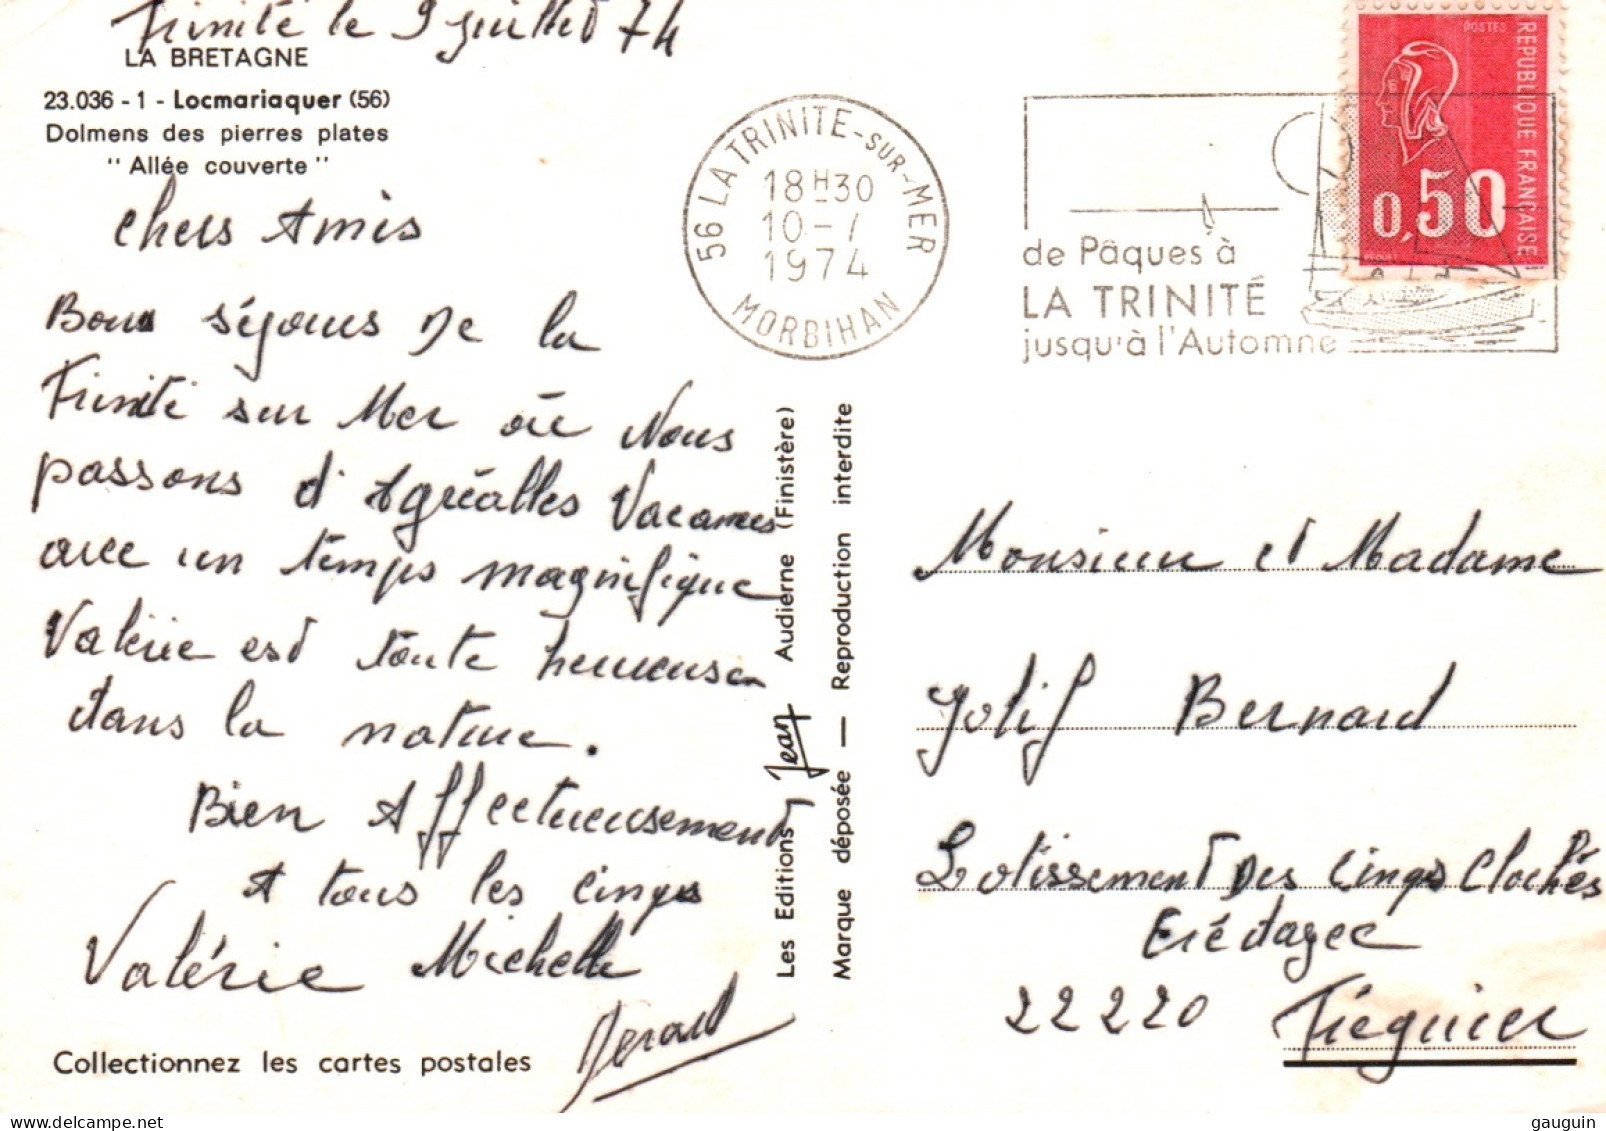 Trinité le 9 juillet 74
LA BRETAGNE
23.036 - 1 - Locmariaquer (56)
Dolmens des pierres plates
"Allée couverte"
chers Amis
Bons séjours de la
Trinité sur Mer où Nous
passons d'Agréables Vacances
avec un temps magnifique
Valérie est toute heureuse
dans la nature.
Bien Affectueusement
A tous les cinqs
Valérie Michelle
Gerard
Collectionnez les cartes postales
Les Editions Jean Audierne (Finistère)
Marque déposée — Reproduction interdite
56 LA TRINITE-SUR-MER
18H30
10-7
1974
MORBIHAN
de Pâques à
LA TRINITÉ
jusqu'à l'Automne
POSTES
REPUBLIQUE FRANCAISE
0,50
Monsieur et Madame
Jolif Bernard
Lotissement Des Cinqs Clochés
22220 Tréguier
gauguin